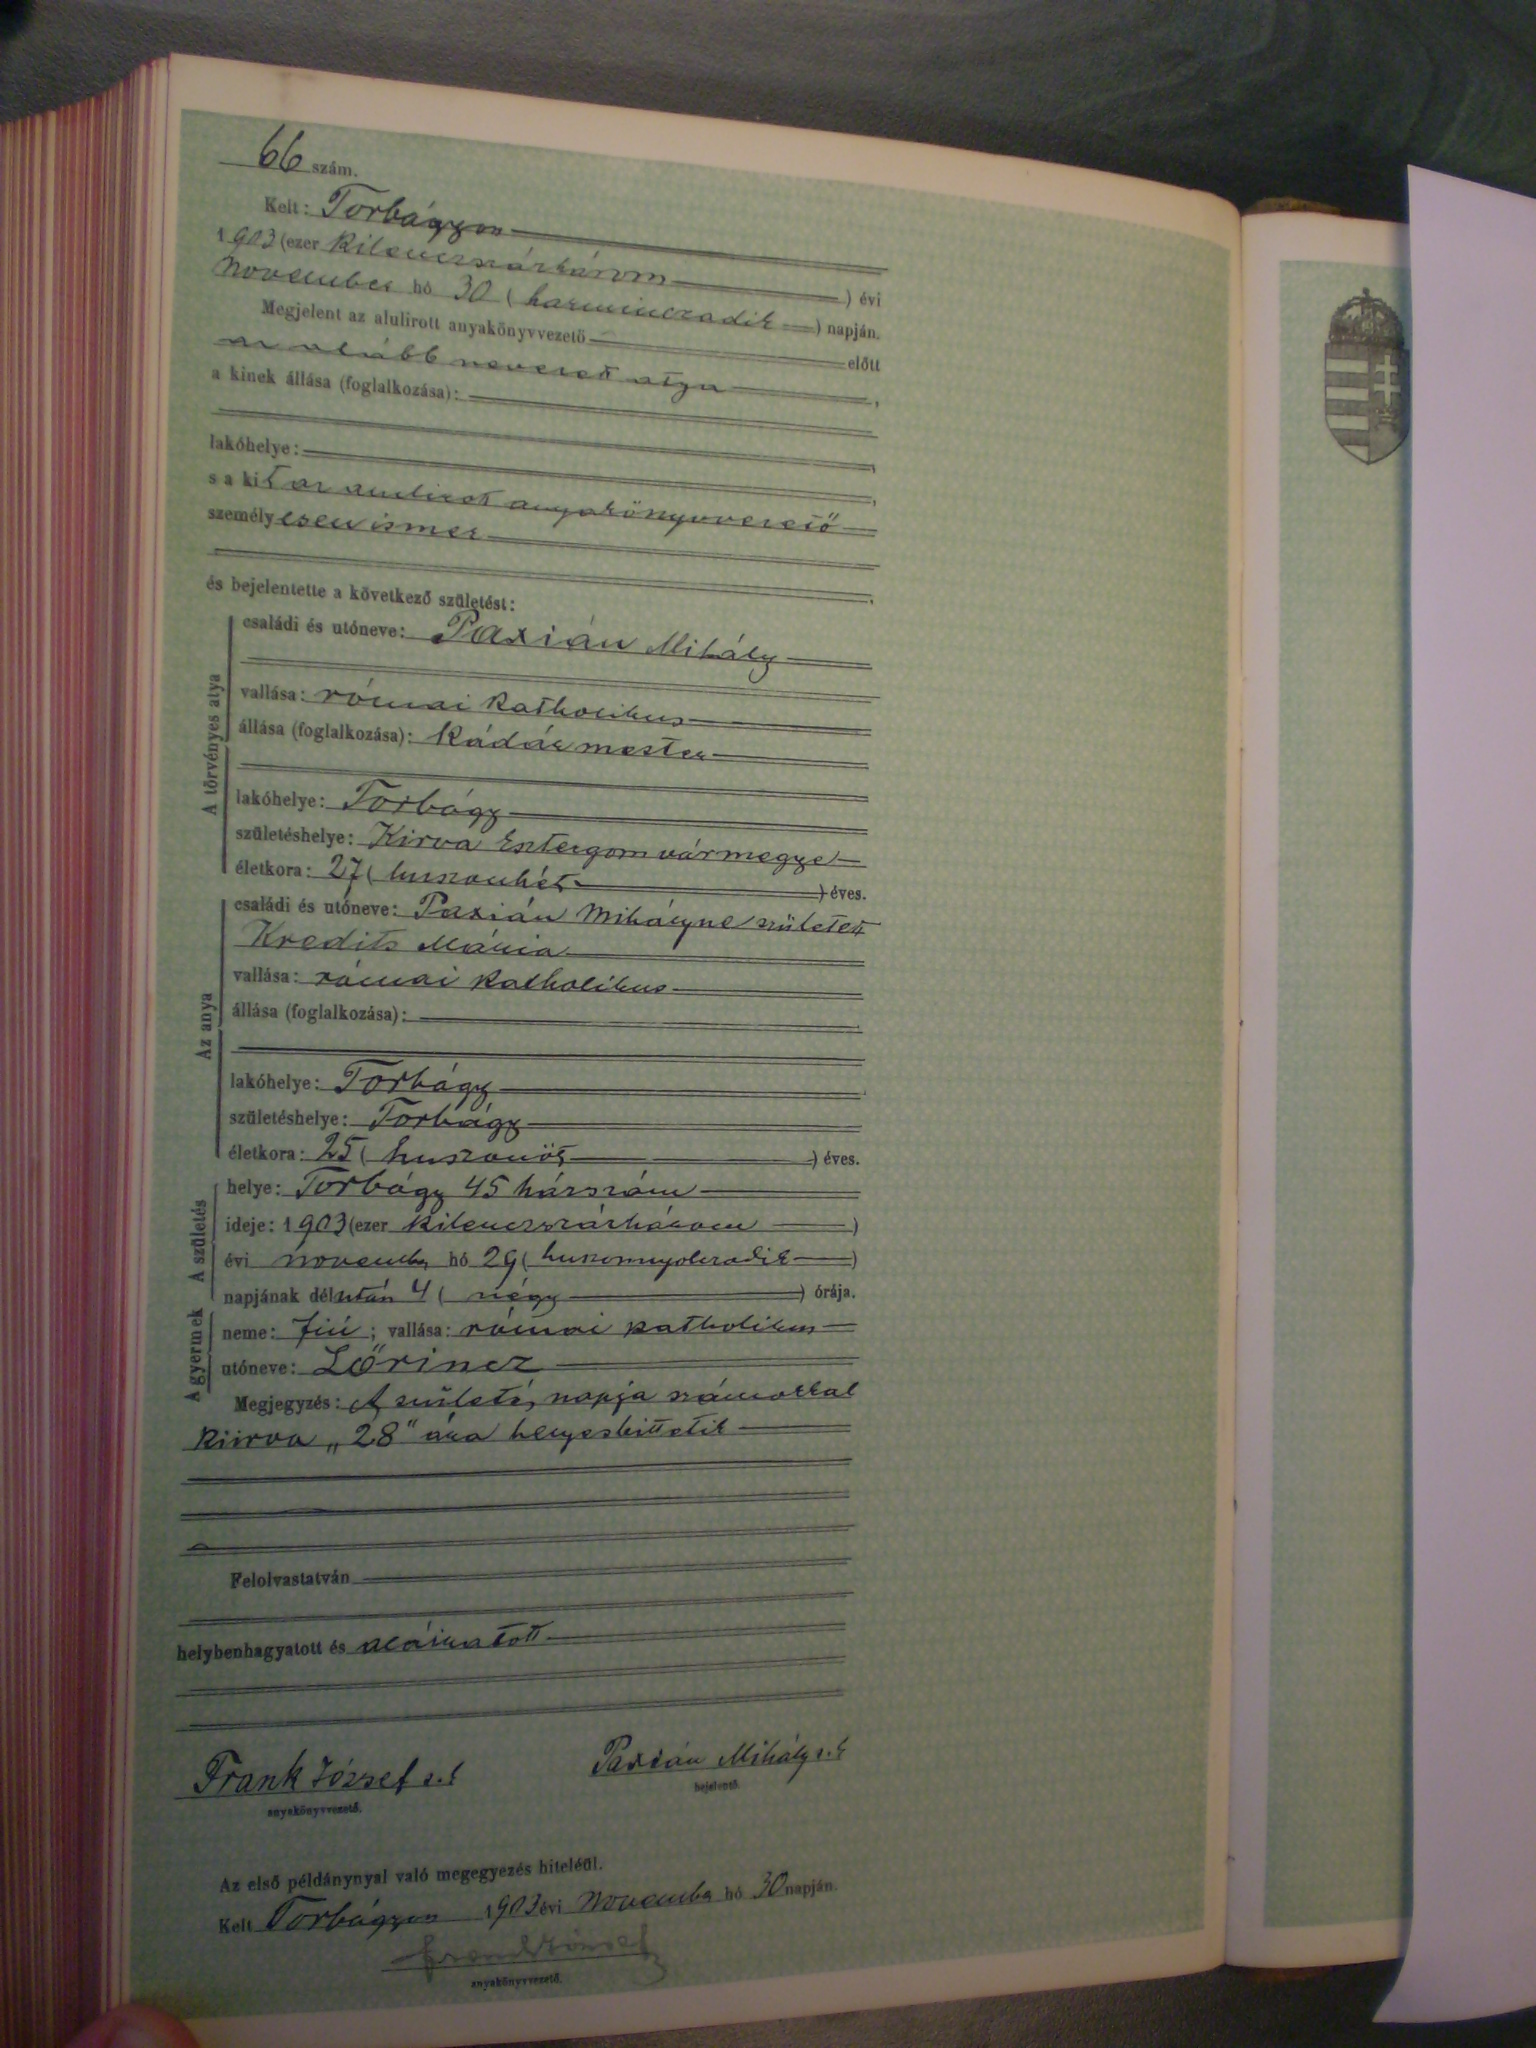 66 szám.
Kelt: Torbágyon
1903 (ezer kilenczszázhárom ) évi
november hó 30 ( harminczadik ) napján.
Megjelent az alulirott anyakönyvvezető előtt
az alább nevezett atya ,
a kinek állása (foglalkozása):
lakóhelye: ,
s a kit az anyakönyvvezető
személyesen ismer
és bejelentette a következő születést:
A törvényes atya
családi és utóneve: Paxián Mihály
vallása: római katholikus
állása (foglalkozása): kádár mester
lakóhelye: Torbágy
születéshelye: Kirva Esztergom vármegye
életkora: 27 ( huszonhét ) éves.
Az anya
családi és utóneve: Paxián Mihályné született
Kredits Mária
vallása: római katholikus
állása (foglalkozása):
lakóhelye: Torbágy
születéshelye: Torbágy
életkora: 25 ( huszonöt ) éves.
A születés
helye: Torbágy 45 házszám
ideje: 1903 (ezer kilenczszázhárom )
évi november hó 29 ( huszonnyolczadik )
napjának délután 4 ( négy ) órája.
A gyermek
neme: fiú ; vallása: római katholikus
utóneve: Lőrincz
Megjegyzés: A születés napja számokkal
kiirva „28" ára helyesbittetik
Felolvastatván
helybenhagyatott és aláiratott
Frank József s.k Paxián Mihály s.k
anyakönyvvezető. bejelentő.
Az első példánynyal való megegyezés hiteléül.
Kelt Torbágyon 1903 évi november hó 30 napján.
Frank József
anyakönyvvezető.